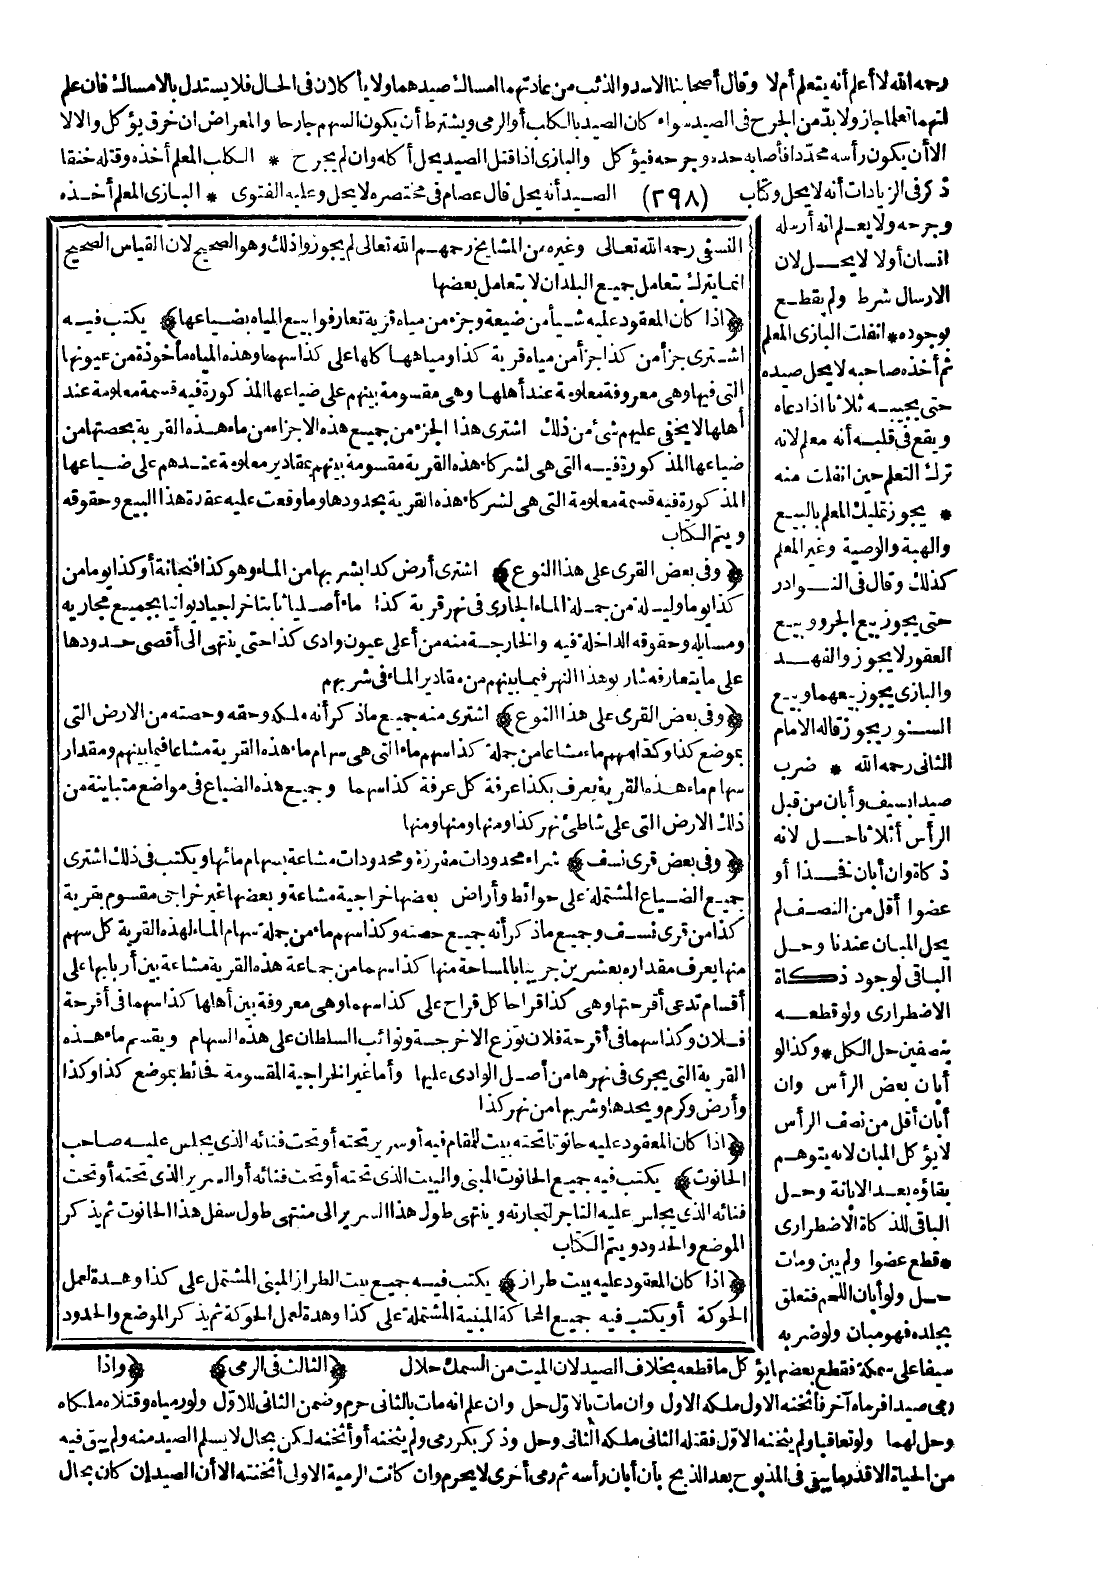 رحمه الله لا أعلم أنه يتعلم أم لا وقال أصحابنا الاسد والذئب من عادتهما امساك صيدهما ولا يأكلان فى الحال فلا يستدل بالامساك فان علم
انهما تعلما جاز ولا بدّ من الجرح فى الصيد سواء كان الصيد بالكلب أو الرمى ويشترط أن يكون السهم جارحا والمعراض ان خرق يؤكل والا لا
الا أن يكون رأسه محدّدا فأصابه حده وجرحه فيؤكل والبازى اذا قتل الصيد يحل أكله وان لم يجرح * الكلب المعلم أخذه وقتله خنقا
ذكر فى الزيادات أنه لا يحل وكتاب (٢٩٨) الصيد أنه يحل قال عصام فى مختصره لا يحل وعليه الفتوى * البازى المعلم أخذه
وجرحه ولا يعلم انه أرسله
انسان أولا لا يحل لان
الارسال شرط ولم يقطع
بوجوده * انفلت البازى المعلم
ثم أخذه صاحبه لا يحل صيده
حتى يجيبه ثلاثا اذا دعاه
ويقع فى قلبه أنه معلم لانه
ترك التعلم حين انفلت منه
* يجوز تمليك المعلم بالبيع
والهبة والوصية وغير المعلم
كذلك وقال فى النوادر
حتى يجوز بيع الجرو وبيع
العقور لا يجوز والفهد
والبازى يجوز بيعهما وبيع
السنور يجوز قاله الامام
الثانى رحمه الله * ضرب
صيدا بسيف وأبان من قبل
الرأس أثلاثا حل لانه
ذكاة وان أبان فخذا أو
عضوا أقل من النصف لم
يحل المبان عندنا وحل
الباقى لوجود ذكاة
الاضطرارى ولو قطعه
بنصفين حل الكل * وكذا لو
أبان بعض الرأس وان
أبان أقل من نصف الرأس
لا يؤكل المبان لانه يتوهم
بقاؤه بعد الابانة وحل
الباقى للذكاة الاضطرارى
* قطع عضوا ولم يبن ومات
حل ولو أبان اللحم فتعلق
بجلده فهو مبان ولو ضربه
النسفى رحمه الله تعالى وغيره من المشايخ رحمهم الله تعالى لم يجوزوا ذلك وهو الصحيح لان القياس الصحيح
انما يترك بتعامل جميع البلدان لا بتعامل بعضها
﴿اذا كان المعقود عليه شيأ من ضيعة وجزء من مياه قرية تعارفوا بيع المياه بضياعها﴾ يكتب فيه
اشترى جزأ من كذا جزأ من مياه قرية كذا ومياهها كلها على كذا سهما وهذه المياه مأخوذة من عيونها
التى فيها وهى معروفة معلومة عند أهلها وهى مقسومة بينهم على ضياعها المذكورة فيه قسمة معلومة عند
أهلها لا يخفى عليهم شئ من ذلك اشترى هذا الجزء من جميع هذه الاجزاء من ماء هذه القرية بحصتها من
ضياعها المذكورة فيه التى هى لشركاء هذه القرية مقسومة بينهم بمقادير معلومة عندهم على ضياعها
المذكورة فيه قسمة معلومة التى هى لشركاء هذه القرية بحدودها وما وقعت عليه عقدة هذا البيع وحقوقه
ويتم الكتاب
﴿وفى بعض القرى على هذا النوع﴾ اشترى أرض كذا بشربها من الماء وهو كذا فنجانة أو كذا يوما من
كذا يوما وليلة من جملة الماء الجارى فى نهر قرية كذا ماء أصليا ثابتا خراجيا ديوانيا بجميع مجاريه
ومسايله وحقوقه الداخلة فيه والخارجة منه من أعلى عيون وادى كذا حتى ينتهى الى أقصى حدودها
على ما يتعارفه شاربو هذا النهر فيما بينهم من مقادير الماء فى شربهم
﴿وفى بعض القرى على هذا النوع﴾ اشترى منه جميع ما ذكر أنه ملكه وحقه وحصته من الارض التى
بموضع كذا وكذا سهم ماء مشاعا من جملة كذا سهم ماء التى هى سهام ماء هذه القرية مشاعا فيما بينهم ومقدار
سهام ماء هذه القرية يعرف بكذا عرفة كل عرفة كذا سهما وجميع هذه الضياع فى مواضع متباينة من
ذلك الارض التى على شاطئ نهر كذا ومنها ومنها ومنها
﴿وفى بعض قرى نسف﴾ شراء محدودات مفرزة ومحدودات مشاعة بسهام مائها ويكتب فى ذلك اشترى
جميع الضياع المشتملة على حوائط وأراض بعضها خراجية مشاعة وبعضها غير خراجى مقسوم بقرية
كذا من قرى نسف وجميع ما ذكر أنه جميع حصته وكذا سهم ماء من جملة سهام الماء لهذه القرية كل سهم
منها يعرف مقداره بعشرين جريبا بالمساحة منها كذا سهما من جماعة هذه القرية مشاعة بين أربابها على
أقسام تدعى أقرحتها وهى كذا قراحا كل قراح على كذا سهما وهى معروفة بين أهلها كذا سهما فى أقرحة
فلان وكذا سهما فى أقرحة فلان توزع الاخرجة ونوائب السلطان على هذه السهام ويقسم ماء هذه
القرية التى يجرى فى نهرها من أصل الوادى عليها وأما غير الخراجية المقسومة فحائط بموضع كذا وكذا
وأرض وكرم ويحدها وشربها من نهر كذا
﴿اذا كان المعقود عليه حانوتا تحته بيت للمقام فيه أو سرير تحته أو تحت فنائه الذى يجلس عليه صاحب
الحانوت﴾ يكتب فيه جميع الحانوت المبنى والبيت الذى تحته أو تحت فنائه أو السرير الذى تحته أو تحت
فنائه الذى يجلس عليه التاجر لتجارته وينتهى طول هذا السرير الى منتهى طول سفل هذا الحانوت ثم يذكر
الموضع والحدود ويتم الكتاب
﴿اذا كان المعقود عليه بيت طراز﴾ يكتب فيه جميع بيت الطراز المبنى المشتمل على كذا وهدة لعمل
الحوكة أو يكتب فيه جميع المحاكة المبنية المشتملة على كذا وهدة لعمل الحوكة ثم يذكر الموضع والحدود
سيفا على سمكة فقطع بعضها يؤكل ما قطعه بخلاف الصيد لان الميت من السمك حلال ﴿الثالث فى الرمى﴾ ﴿واذا
رمى صيدا فرماه آخر فأثخنه الاول ملكه الاول وان مات بالاول حل وان علم انه مات بالثانى حرم وضمن الثانى للاول ولو رمياه وقتلاه ملكاه
وحل لهما ولو تعاقبا ولم يثخنه الاول فقتله الثانى ملكه الثانى وحل وذكر بكر رمى ولم يثخنه أو أثخنه لكن بحال لا يسلم الصيد منه ولم يبق فيه
من الحياة الا قدر ما يبقى فى المذبوح بعد الذبح بأن أبان رأسه ثم رمى أخرى لا يحرم وان كانت الرمية الاولى أثخنته الا أن الصيد ان كان بحال